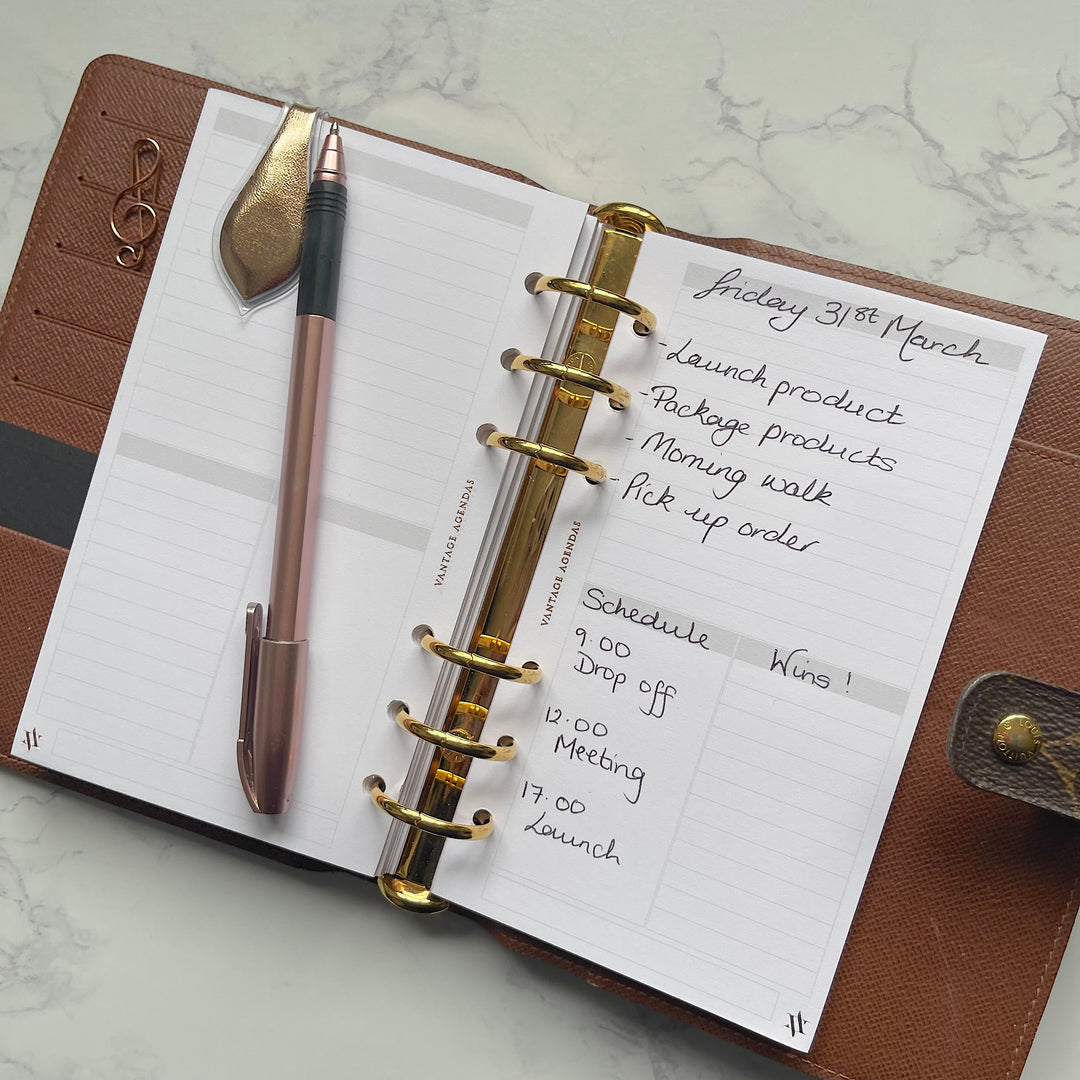 VANTAGE AGENDAS
VANTAGE AGENDAS
Friday 31st March
- Launch product
- Package products
- Morning walk
- Pick up order
Schedule
9.00
Drop off
12.00
Meeting
17.00
Launch
Wins!
LOUIS VUITTON